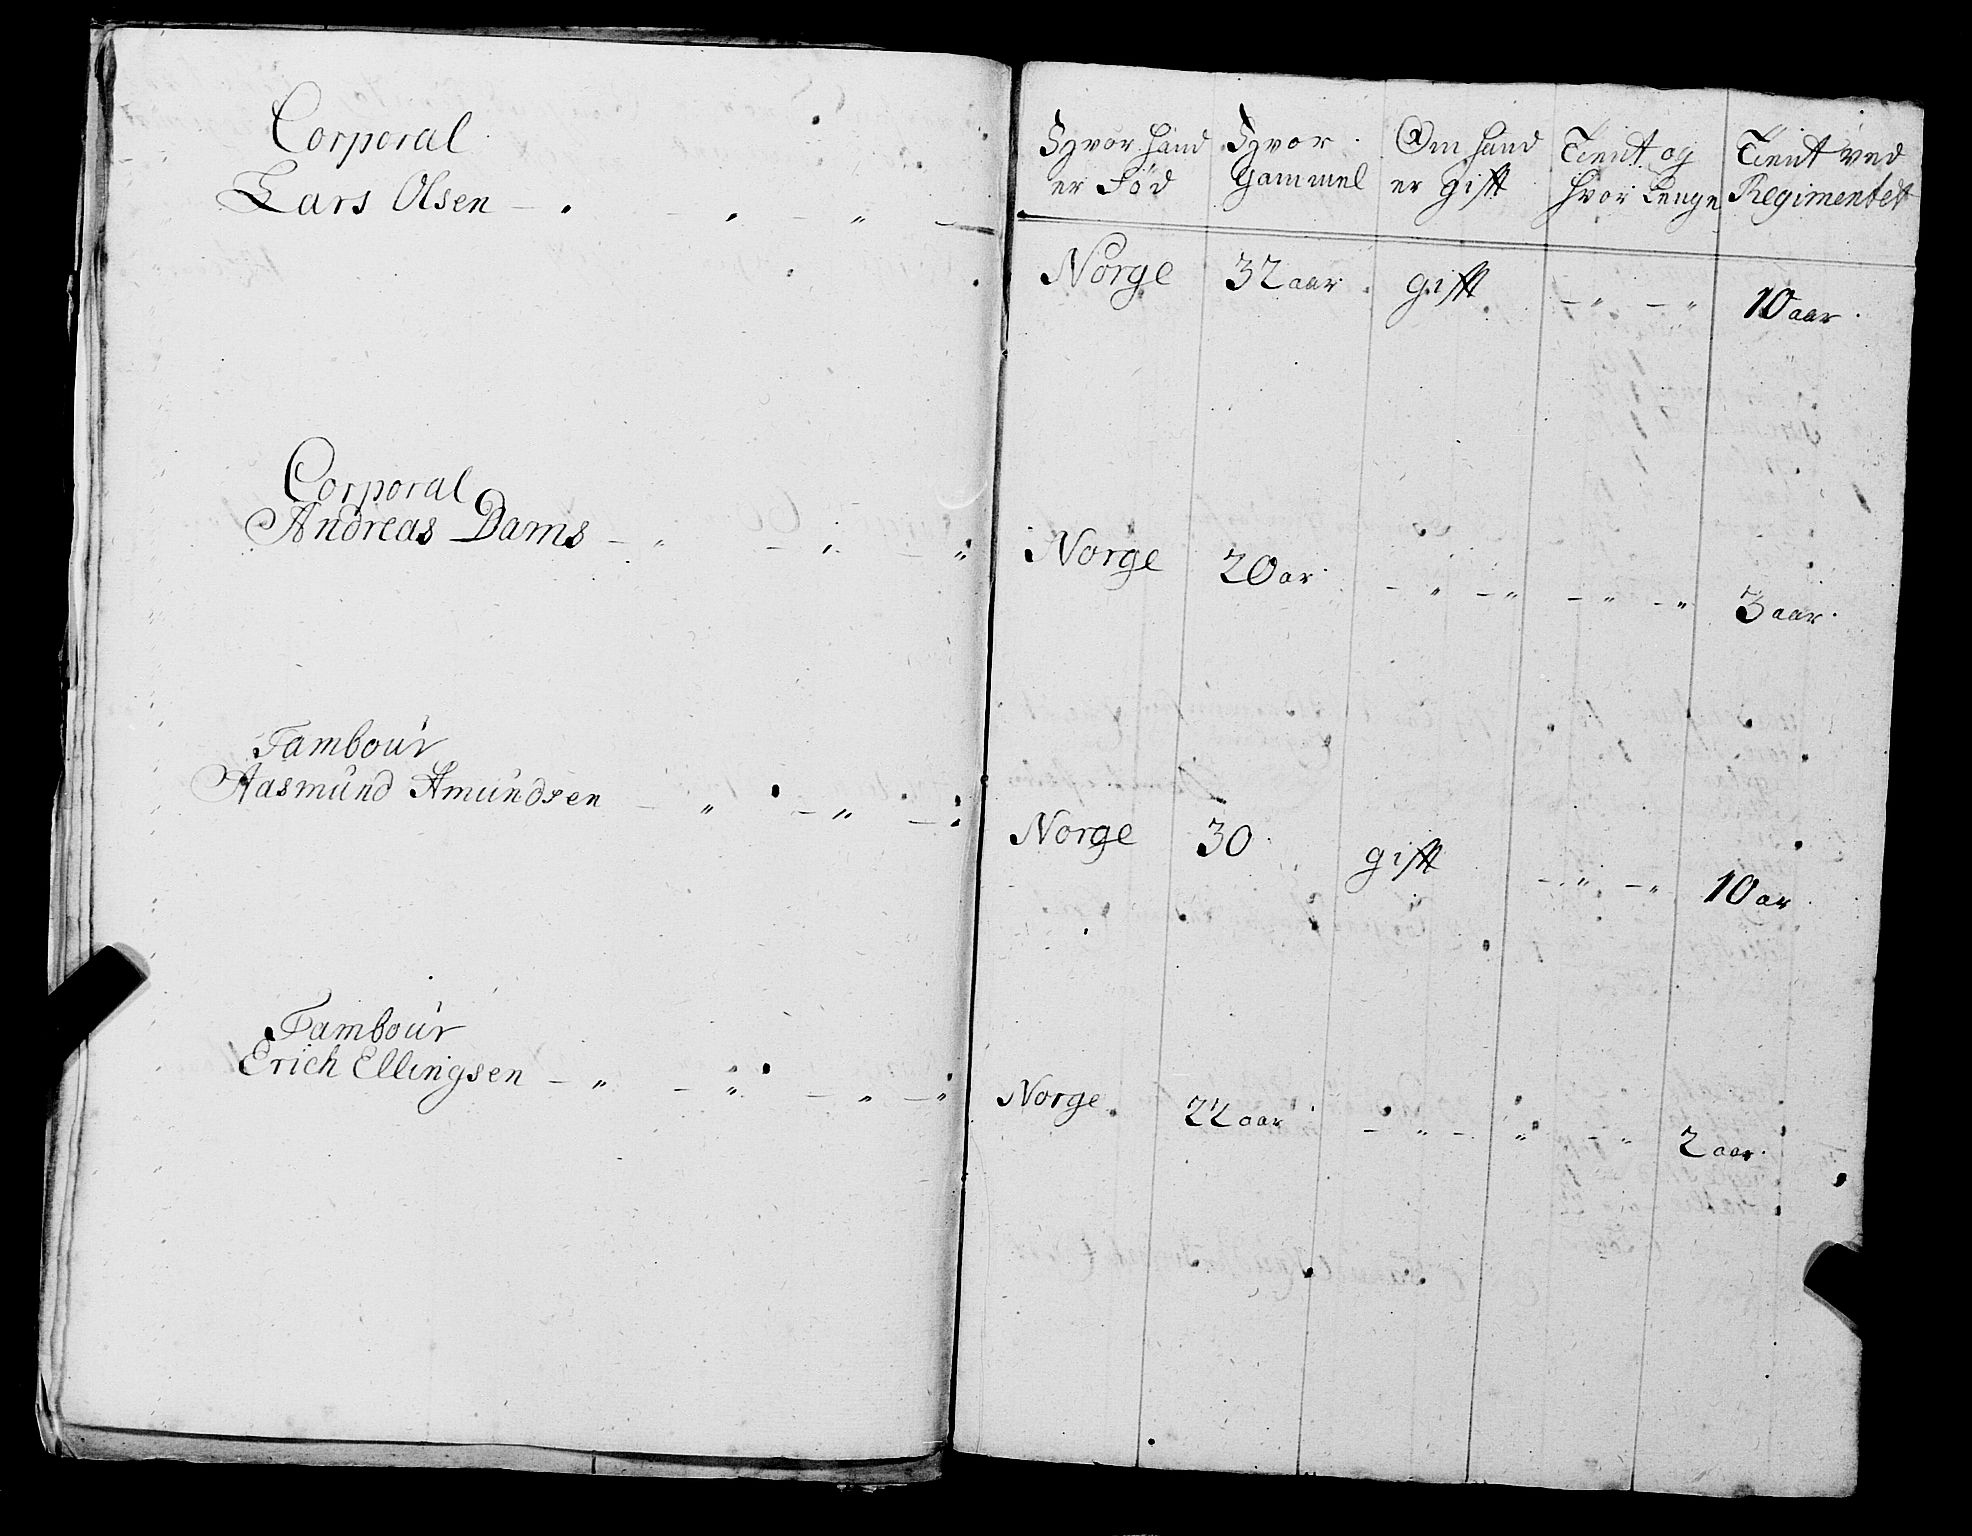 Corporal
Lars Olsen - " - " - " -
Corporal
Andreas Dams - " - " - "
Tambour
Aasmund Amundsen - " - " - "
Tambour
Erich Ellingsen - " - " - " - "
Hvor hand er Fød
Hvor gammel
Om hand er gifft
Tient og hvor Lenge
Tient ved Regimentet
Norge 32 aar gifft - " - " 10 aar
Norge 20 ar - " - " - " - " 3 aar
Norge 30 gifft - " - " 10 ar
Norge 22 aar - " - " - " 2 aar